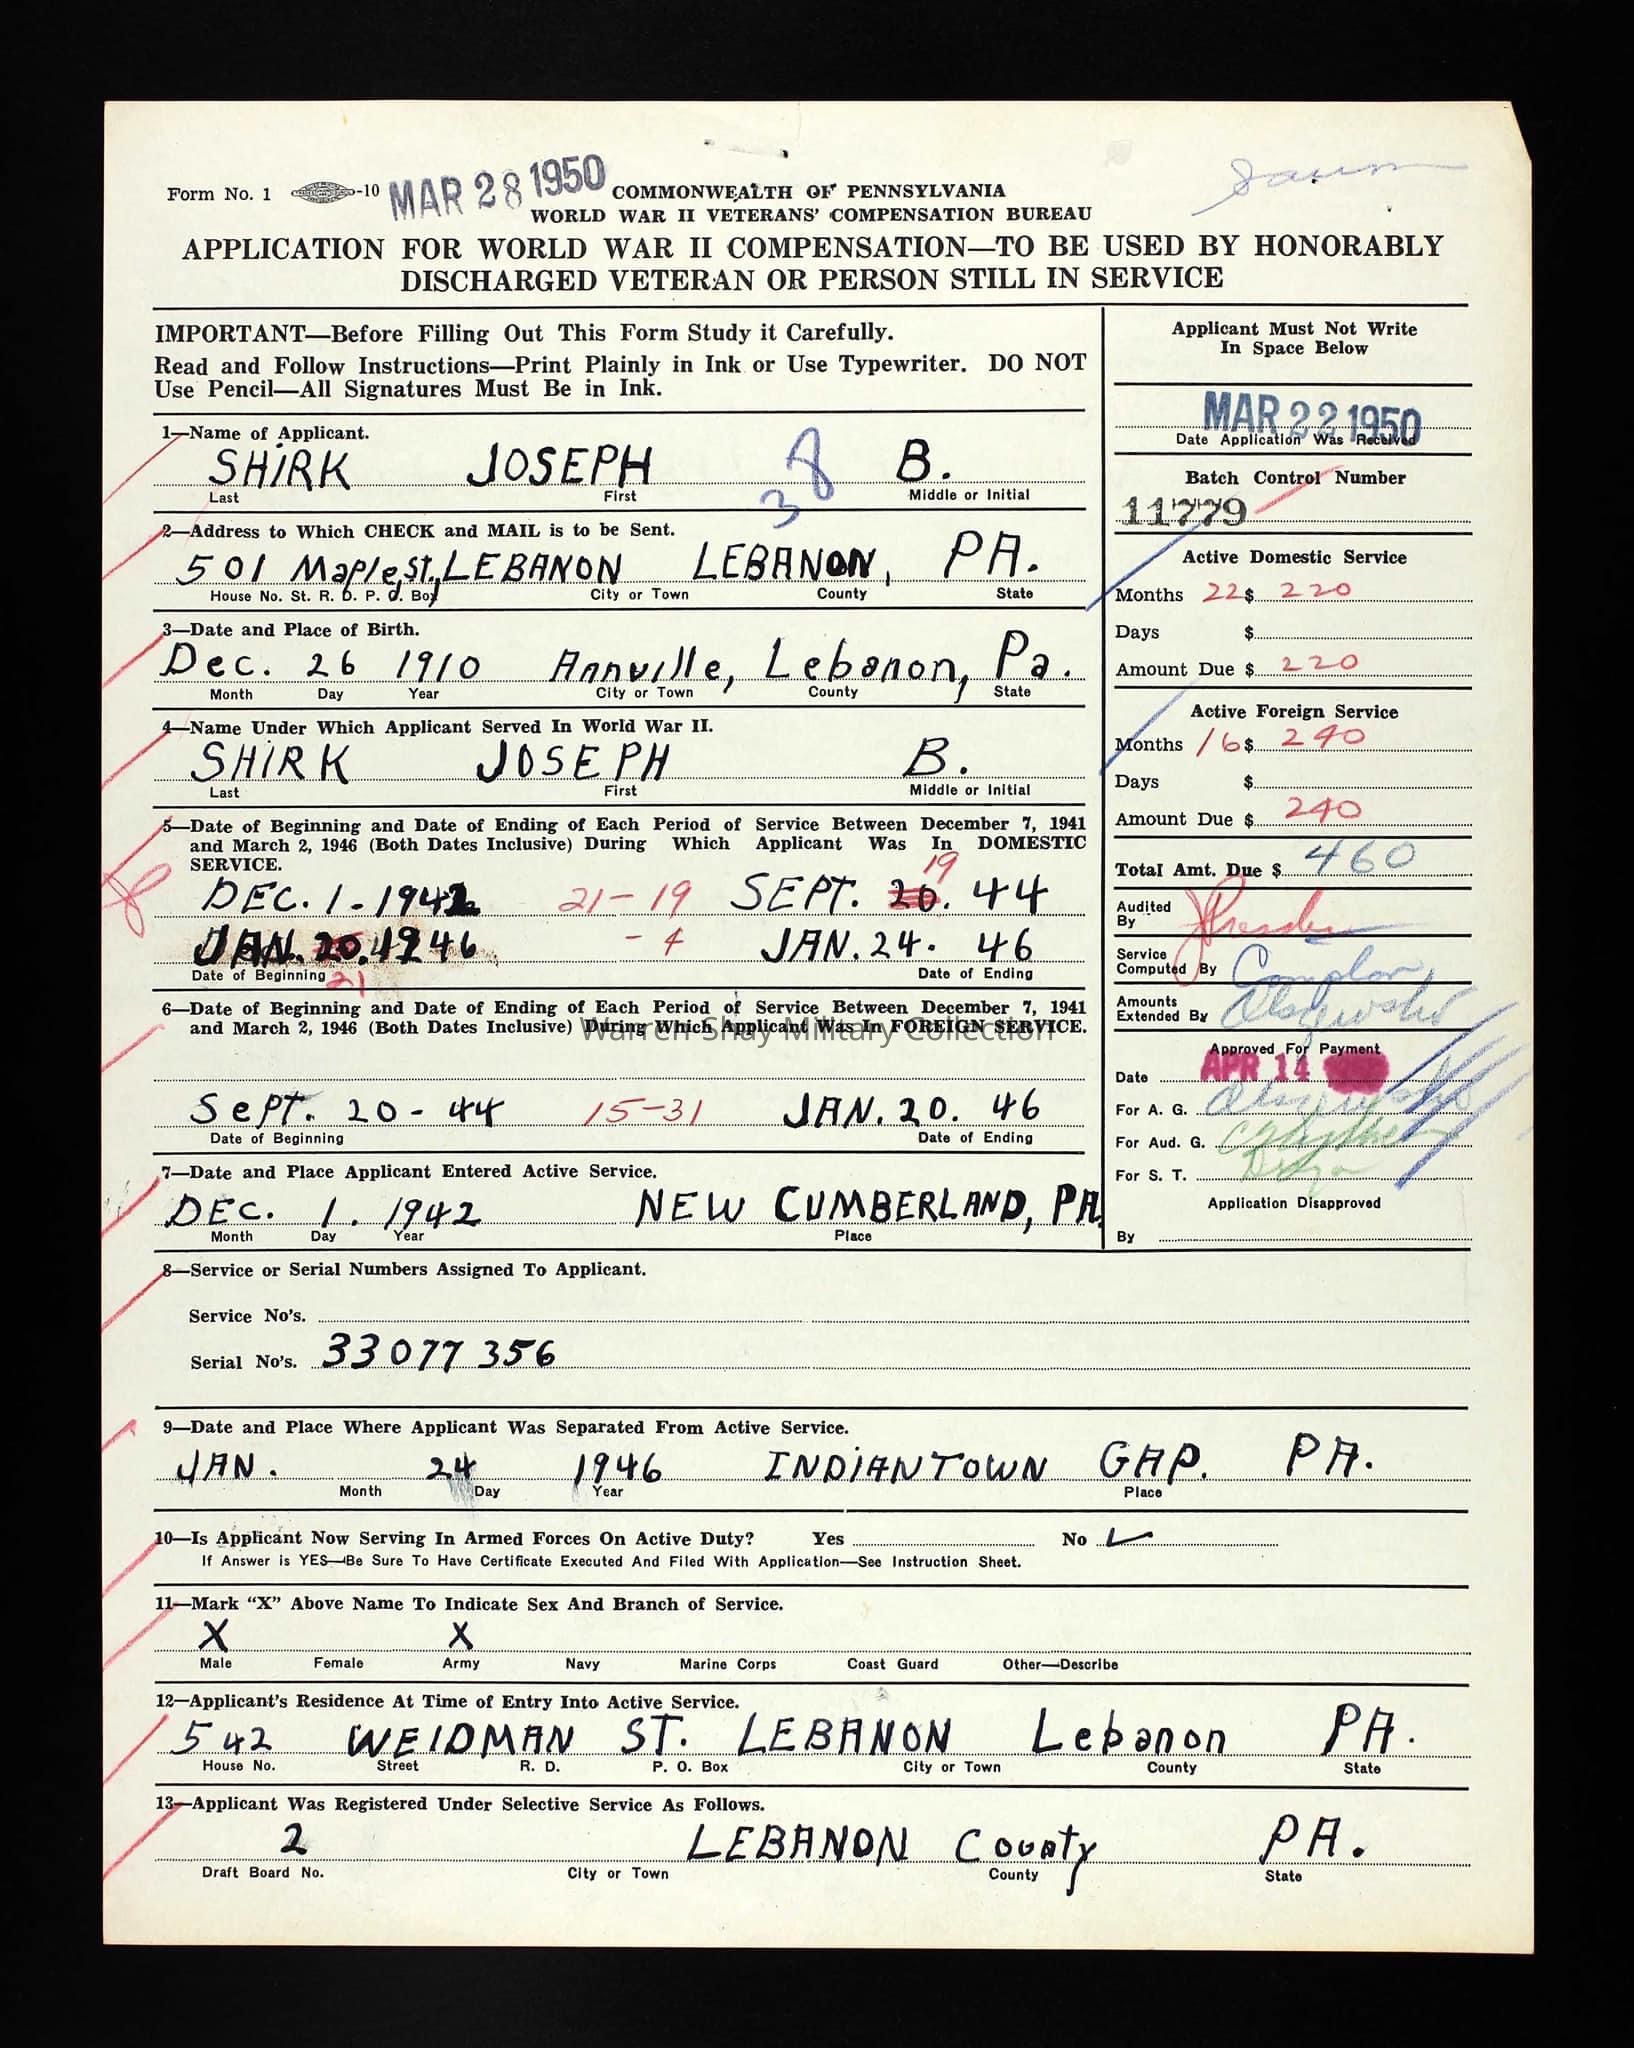 Form No. 1 -10 MAR 28 1950 COMMONWEALTH OF PENNSYLVANIA
WORLD WAR II VETERANS' COMPENSATION BUREAU
APPLICATION FOR WORLD WAR II COMPENSATION—TO BE USED BY HONORABLY
DISCHARGED VETERAN OR PERSON STILL IN SERVICE
IMPORTANT—Before Filling Out This Form Study it Carefully.
Read and Follow Instructions—Print Plainly in Ink or Use Typewriter. DO NOT
Use Pencil—All Signatures Must Be in Ink.
1—Name of Applicant.
SHIRK JOSEPH B.
38
Last First Middle or Initial
2—Address to Which CHECK and MAIL is to be Sent.
501 Maple St., LEBANON LEBANON, PA.
House No. St. R. D. P. O. Box City or Town County State
3—Date and Place of Birth.
Dec. 26 1910 Annville, Lebanon, Pa.
Month Day Year City or Town County State
4—Name Under Which Applicant Served In World War II.
SHIRK JOSEPH B.
Last First Middle or Initial
5—Date of Beginning and Date of Ending of Each Period of Service Between December 7, 1941
and March 2, 1946 (Both Dates Inclusive) During Which Applicant Was In DOMESTIC
SERVICE.
19
DEC. 1 - 1942 21-19 SEPT. 20. 44
JAN. 20. 1946 - 4 JAN. 24. 46
Date of Beginning Date of Ending
21
6—Date of Beginning and Date of Ending of Each Period of Service Between December 7, 1941
and March 2, 1946 (Both Dates Inclusive) During Which Applicant Was In FOREIGN SERVICE.
Warren Shay Military Collection
Sept. 20 - 44 15-31 JAN. 20. 46
Date of Beginning Date of Ending
7—Date and Place Applicant Entered Active Service.
DEC. 1. 1942 NEW CUMBERLAND, PA.
Month Day Year Place
Applicant Must Not Write
In Space Below
MAR 22 1950
Date Application Was Received
Batch Control Number
11779
Active Domestic Service
Months 22 $ 220
Days $
Amount Due $ 220
Active Foreign Service
Months 16 $ 240
Days $
Amount Due $ 240
Total Amt. Due $ 460
Audited
By
Service
Computed By
Amounts
Extended By
Approved For Payment
Date APR 14
For A. G.
For Aud. G.
For S. T.
Application Disapproved
By
8—Service or Serial Numbers Assigned To Applicant.
Service No's.
Serial No's. 33 077 356
9—Date and Place Where Applicant Was Separated From Active Service.
JAN. 24 1946 INDIANTOWN GAP. PA.
Month Day Year Place
10—Is Applicant Now Serving In Armed Forces On Active Duty? Yes No ✓
If Answer is YES—Be Sure To Have Certificate Executed And Filed With Application—See Instruction Sheet.
11—Mark "X" Above Name To Indicate Sex And Branch of Service.
X X
Male Female Army Navy Marine Corps Coast Guard Other—Describe
12—Applicant's Residence At Time of Entry Into Active Service.
542 WEIDMAN ST. LEBANON Lebanon PA.
House No. Street R. D. P. O. Box City or Town County State
13—Applicant Was Registered Under Selective Service As Follows.
2 LEBANON County PA.
Draft Board No. City or Town County State